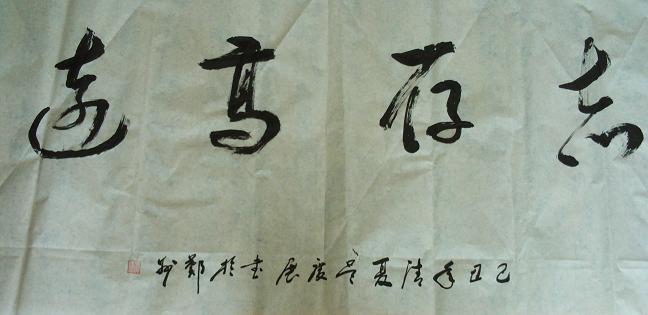 志存高远
己丑年清夏吴广展书于郑州